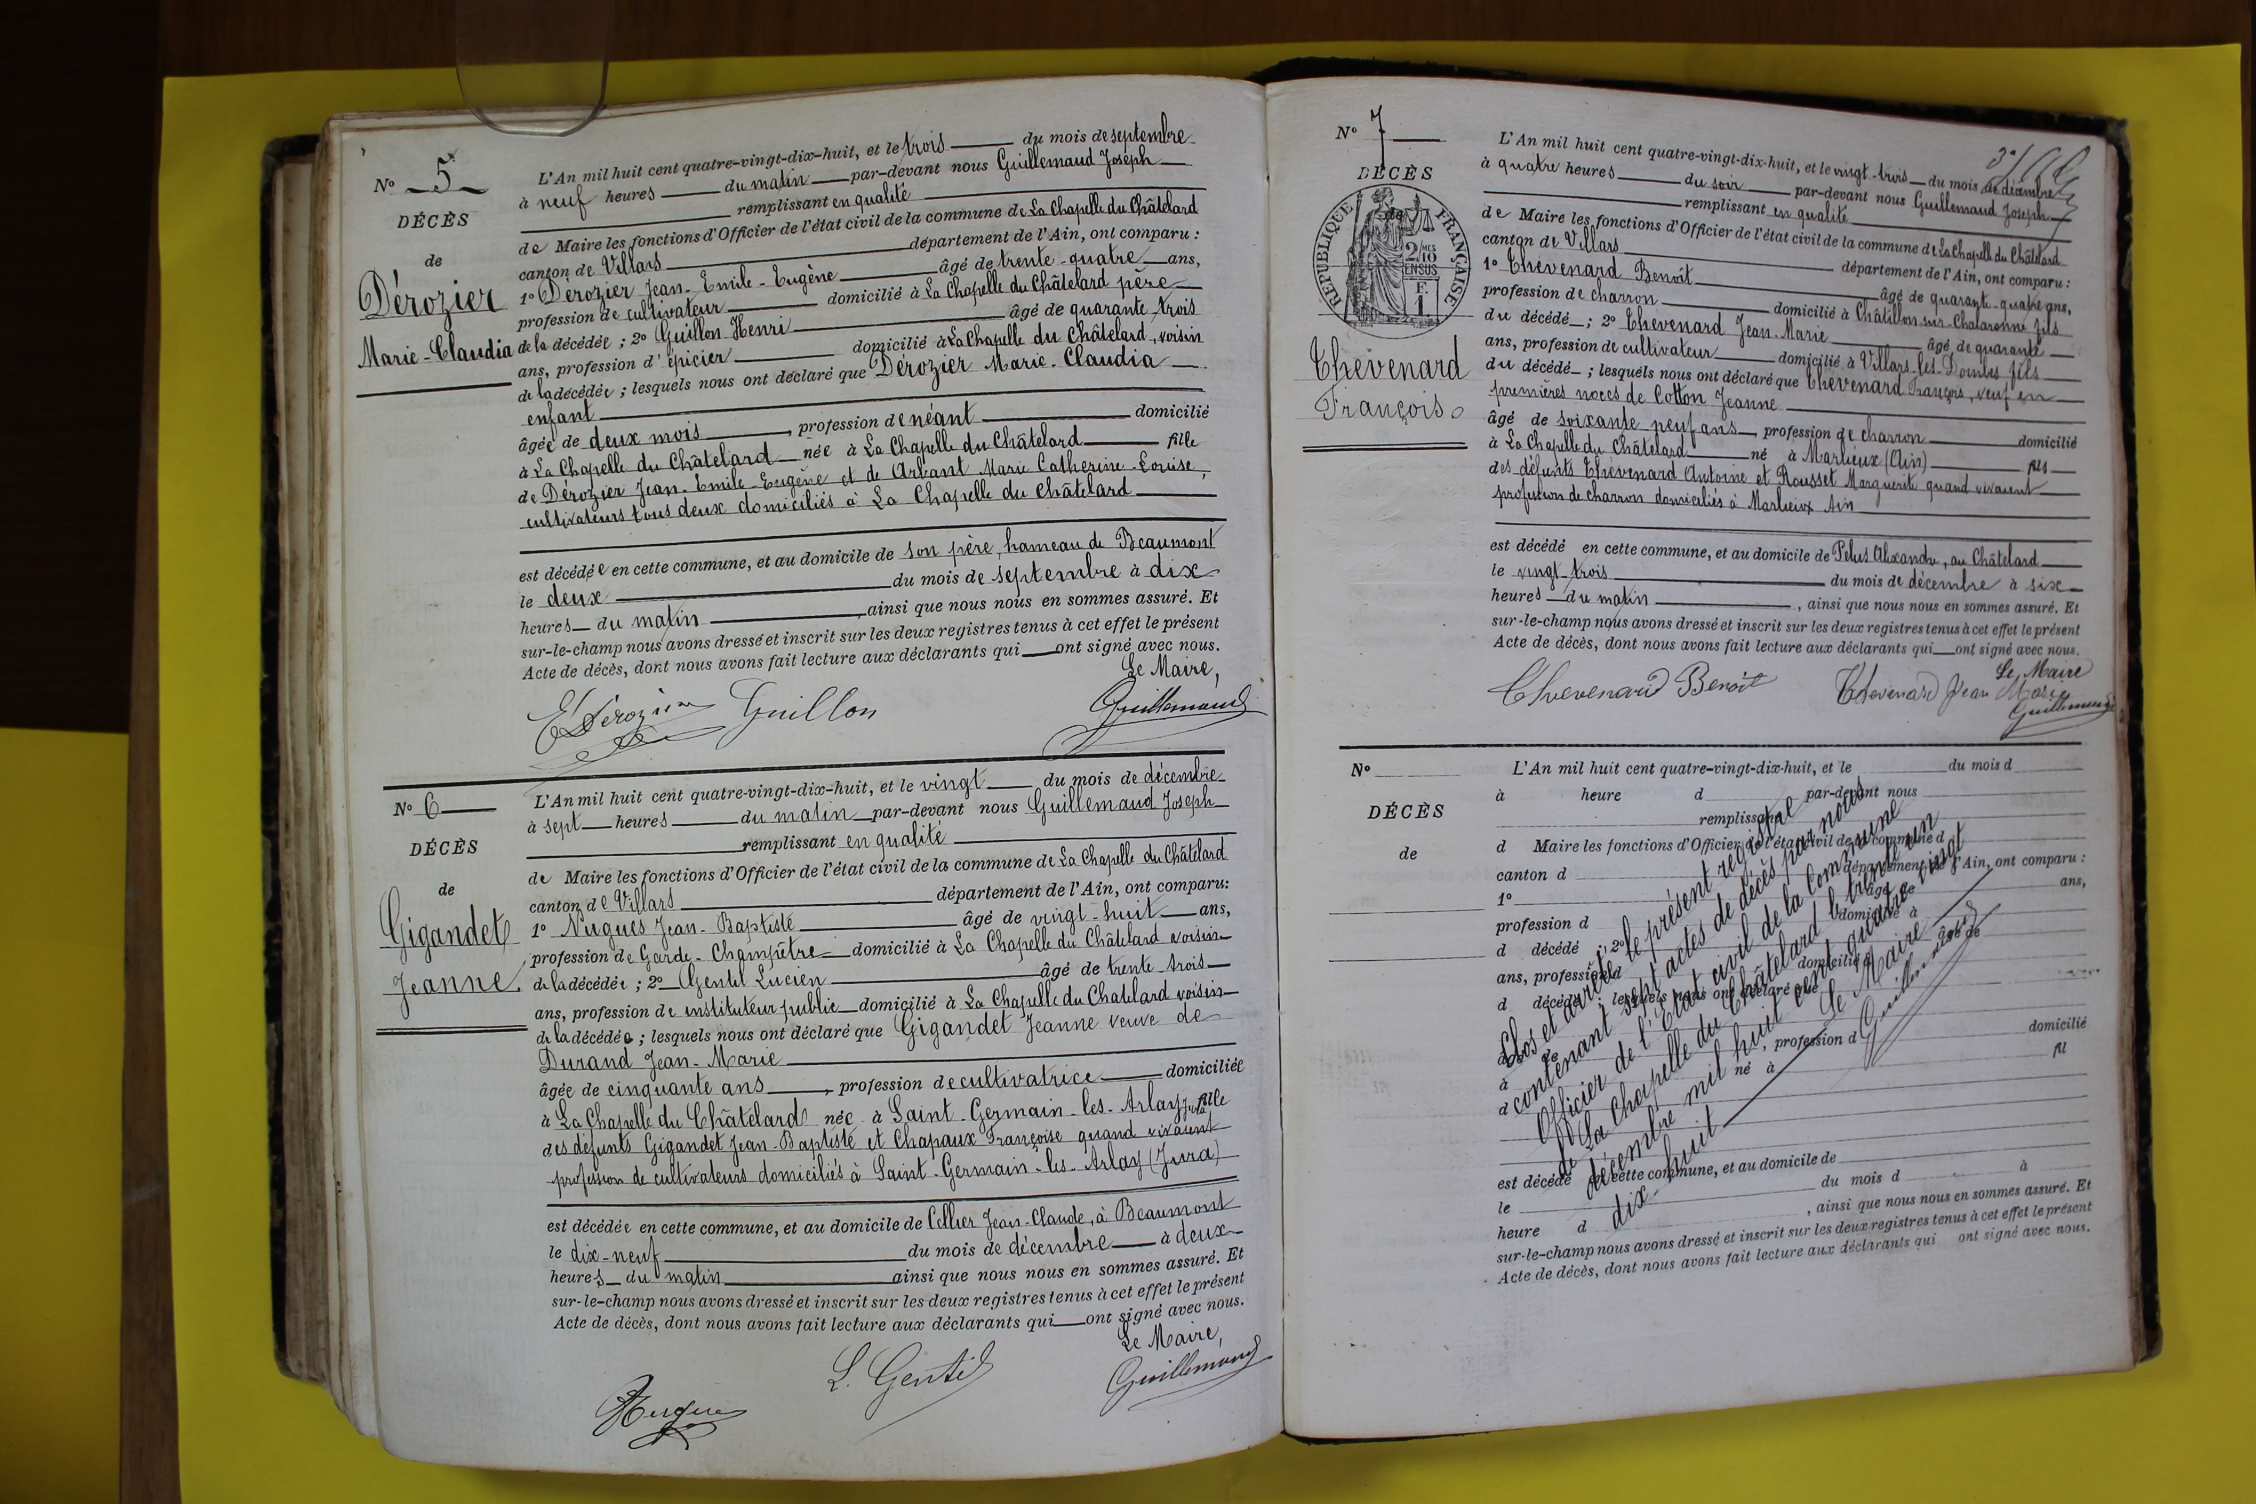 N° 5
DÉCÈS
de
Dérozier
Marie-Claudia
L'An mil huit cent quatre-vingt-dix-huit, et le trois du mois de septembre
à neuf heures du matin par-devant nous Guillemaud Joseph
remplissant en qualité
de Maire les fonctions d'Officier de l'état civil de la commune de La Chapelle du Châtelard
canton de Villars département de l'Ain, ont comparu :
1° Dérozier Jean-Emile-Eugène âgé de trente-quatre ans,
profession de cultivateur domicilié à La Chapelle du Châtelard père
de la décédée ; 2° Guillon Henri âgé de quarante trois
ans, profession d'épicier domicilié à La Chapelle du Châtelard, voisin
de la décédée ; lesquels nous ont déclaré que Dérozier Marie-Claudia
enfant
âgée de deux mois, profession de néant domicilié
à La Chapelle du Châtelard née à La Chapelle du Châtelard fille
de Dérozier Jean-Emile-Eugène et de Arbant Marie Catherine-Louise,
cultivateurs tous deux domiciliés à La Chapelle du Châtelard
est décédée en cette commune, et au domicile de son père, hameau de Beaumont
le deux du mois de septembre à dix
heures du matin, ainsi que nous nous en sommes assuré. Et
sur-le-champ nous avons dressé et inscrit sur les deux registres tenus à cet effet le présent
Acte de décès, dont nous avons fait lecture aux déclarants qui ont signé avec nous.
Le Maire,
E Dérozier Guillon Guillemaud
N° 6
DÉCÈS
de
Gigandet
Jeanne
L'An mil huit cent quatre-vingt-dix-huit, et le vingt du mois de décembre
à sept heures du matin par-devant nous Guillemaud Joseph
remplissant en qualité
de Maire les fonctions d'Officier de l'état civil de la commune de La Chapelle du Châtelard
canton de Villars département de l'Ain, ont comparu:
1° Nugues Jean-Baptiste âgé de vingt-huit ans,
profession de Garde-Champêtre domicilié à La Chapelle du Châtelard voisin
de la décédée ; 2° Gentil Lucien âgé de trente-trois
ans, profession de instituteur public domicilié à La Chapelle du Chatelard voisin
de la décédée ; lesquels nous ont déclaré que Gigandet Jeanne veuve de
Durand Jean-Marie
âgée de cinquante ans, profession de cultivatrice domiciliée
à La Chapelle du Châtelard née à Saint-Germain-les-Arlay Jura fille
des défunts Gigandet Jean-Baptiste et Chapaux Françoise quand vivaient
profession de cultivateurs domiciliés à Saint-Germain-les-Arlay (Jura)
est décédée en cette commune, et au domicile de Cellier Jean-Claude, à Beaumont
le dix-neuf du mois de décembre à deux
heures du matin ainsi que nous nous en sommes assuré. Et
sur-le-champ nous avons dressé et inscrit sur les deux registres tenus à cet effet le présent
Acte de décès, dont nous avons fait lecture aux déclarants qui ont signé avec nous.
Le Maire,
Nugues L. Gentil Guillemaud
N° 7
DÉCÈS
de
RÉPUBLIQUE FRANÇAISE
2/10
EN SUS
Thévenard
François
L'An mil huit cent quatre-vingt-dix-huit, et le vingt-trois du mois de décembre
à quatre heures du soir par-devant nous Guillemaud Joseph
remplissant en qualité
de Maire les fonctions d'Officier de l'état civil de la commune de La Chapelle du Châtelard
canton de Villars département de l'Ain, ont comparu :
1° Thévenard Benoît âgé de quarante-quatre ans,
profession de charron domicilié à Châtillon-sur-Chalaronne fils
du décédé ; 2° Thevenard Jean-Marie âgé de quarante
ans, profession de cultivateur domicilié à Villars-les-Dombes fils
du décédé ; lesquels nous ont déclaré que Thevenard François, veuf en
premières noces de Cotton Jeanne
âgé de soixante neuf ans, profession de charron domicilié
à La Chapelle du Châtelard né à Marlieux (Ain) fils
des défunts Thévenard Antoine et Rousset Marguerite quand vivaient
profession de charron domiciliés à Marlieux Ain
est décédé en cette commune, et au domicile de Alexandre, au Châtelard
le vingt-trois du mois de décembre à six
heures du matin, ainsi que nous nous en sommes assuré. Et
sur-le-champ nous avons dressé et inscrit sur les deux registres tenus à cet effet le présent
Acte de décès, dont nous avons fait lecture aux déclarants qui ont signé avec nous.
Le Maire
Thevenard Benoît Thevenard Jean Marie Guillemaud
N°
DÉCÈS
de
L'An mil huit cent quatre-vingt-dix-huit, et le du mois d
à heure d par-devant nous
remplissant
d Maire les fonctions d'Officier de l'état civil de la commune d
canton d département de l'Ain, ont comparu :
1° âgé de ans,
profession d domicilié à
d décédé ; 2° âgé de
ans, profession d domicilié à
d décédé ; lesquels nous ont déclaré que
âgé de , profession d domicilié
à né à fil
d
est décédé en cette commune, et au domicile de
le du mois d à
heure d , ainsi que nous nous en sommes assuré. Et
sur-le-champ nous avons dressé et inscrit sur les deux registres tenus à cet effet le présent
Acte de décès, dont nous avons fait lecture aux déclarants qui ont signé avec nous.
Clos et arrêté le présent registre
contenant sept actes de décès par nous
Officier de l'Etat civil de la Commune
de La Chapelle du Châtelard le trente un
décembre mil huit cent quatre vingt
dix-huit
Le Maire
Guillemaud